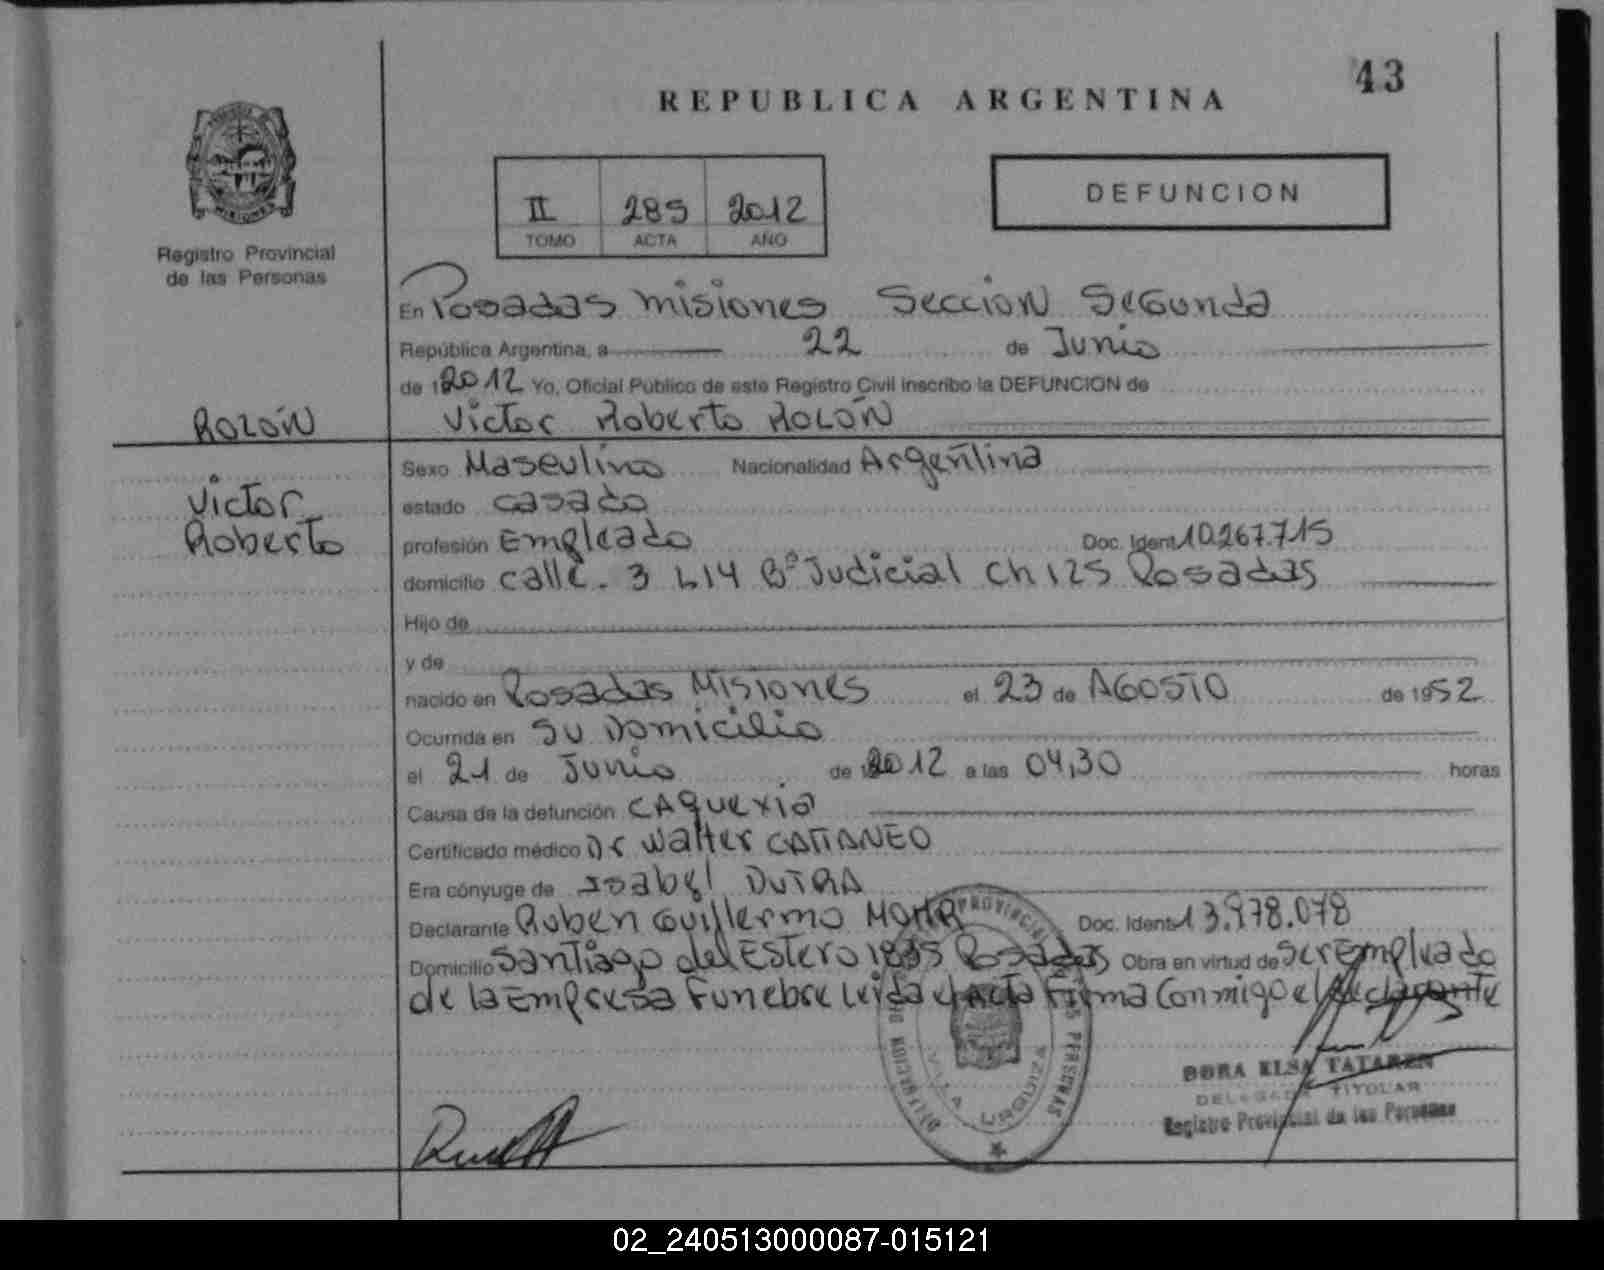 43
REPUBLICA ARGENTINA
II 285 2012
TOMO ACTA AÑO
DEFUNCION
Registro Provincial
de las Personas
En Posadas Misiones Seccion Segunda
República Argentina, a 22 de Junio
de 12012 Yo, Oficial Público de este Registro Civil inscribo la DEFUNCION de
ROLÓN Victor Roberto ROLÓN
Sexo Masculino Nacionalidad Argentina
Victor estado casado
Roberto profesión Empleado Doc. Ident. 10.267.715
domicilio calle. 3 L14 Bº Judicial Ch 125 Posadas
Hijo de
y de
nacido en Posadas Misiones el 23 de AGOSTO de 1952
Ocurrida en Su Domicilio
el 21 de Junio de 2012 a las 04,30 horas
Causa de la defunción CAquexia
Certificado médico Dr Walter CATTANEO
Era cónyuge de Isabel DUTRA
Declarante Ruben Guillermo MOHR Doc. Ident. 13.978.078
Domicilio Santiago del Estero 1835 Posadas Obra en virtud de ser Empleado
de la Empresa Funebre leida el Acta Firma Conmigo el declarante
PROVINCIAL DE LAS PERSONAS
VILLA URQUIZA
DORA ELSA TATAREN
DELEGADA TITULAR
Registro Provincial de las Personas
02_240513000087-015121